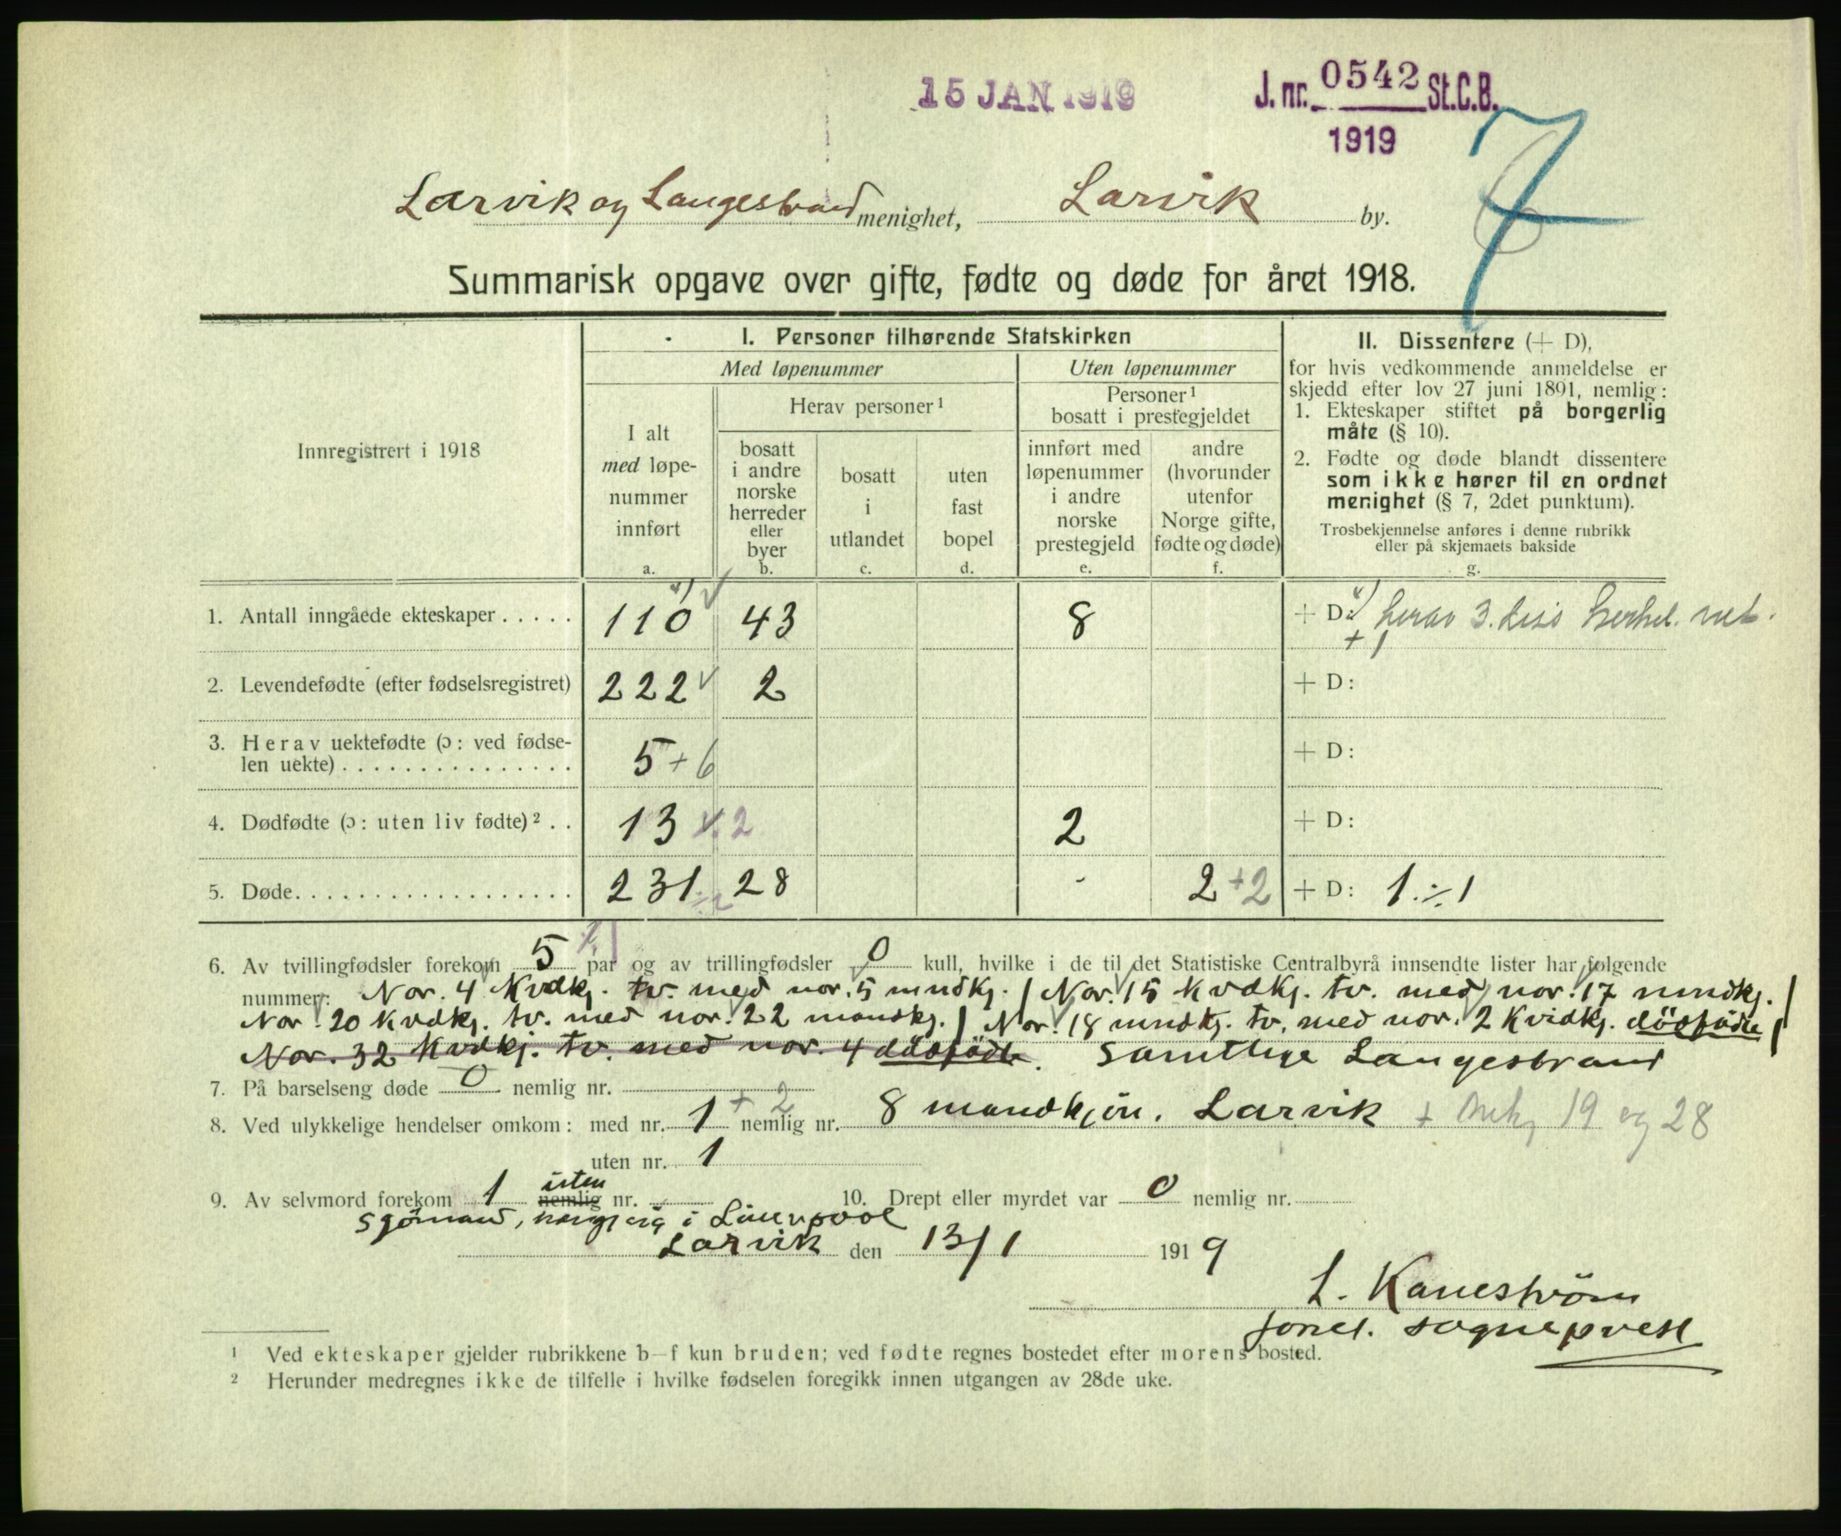 15 JAN 1919
J. nr. 0542 St.C.B.
1919
7
Larvik og Langestrand menighet, Larvik by.
Summarisk opgave over gifte, fødte og døde for året 1918.
Innregistrert i 1918
I. Personer tilhørende Statskirken
Med løpenummer
Uten løpenummer
I alt
med løpe-
nummer
innført
a.
Herav personer¹
bosatt
i andre
norske
herreder
eller
byer
b.
bosatt
i
utlandet
c.
uten
fast
bopel
d.
Personer¹
bosatt i prestegjeldet
innført med
løpenummer
i andre
norske
prestegjeld
e.
andre
(hvorunder
utenfor
Norge gifte,
fødte og døde)
f.
II. Dissentere (+ D),
for hvis vedkommende anmeldelse er
skjedd efter lov 27 juni 1891, nemlig:
1. Ekteskaper stiftet på borgerlig
måte (§ 10).
2. Fødte og døde blandt dissentere
som ikke hører til en ordnet
menighet (§ 7, 2det punktum).
Trosbekjennelse anføres i denne rubrikk
eller på skjemaets bakside
g.
1. Antall inngåede ekteskaper..... 110 43 8 + D: herav 3. diss
+ 1
2. Levendefødte (efter fødselsregistret) 222 2 + D:
3. Herav uektefødte (ɔ: ved fødse-
len uekte)............... 5 + 6 + D:
4. Dødfødte (ɔ: uten liv fødte)².. 13 ÷ 2 2 + D:
5. Døde.................. 231 ÷ 2 28 - 2 + 2 + D: 1 ÷ 1
6. Av tvillingfødsler forekom 5 ÷ 1 par og av trillingfødsler 0 kull, hvilke i de til det Statistiske Centralbyrå innsendte lister har følgende
nummer: Nor. 4 Kvdkj. tv. med nor. 5 mndkj. / Nor. 15 Kvdkj. tv. med nor. 17 mndkj. /
Nor. 20 Kvdkj. tv. med nor. 22 mandkj. / Nor. 18 mndkj. tv. med nor. 2 Kvidkj. dödfödte /
Nor. 32 Kvdkj. tv. med nor. 4 dödfödte. Samtlige Langestrand
7. På barselseng døde 0 nemlig nr.
8. Ved ulykkelige hendelser omkom: med nr. 1 + 2 nemlig nr. 8 mandkjön. Larvik + 19 og 28
uten nr. 1
9. Av selvmord forekom 1 nemlig uten nr. 10. Drept eller myrdet var 0 nemlig nr.
sjömand, i Liverpool
Larvik den 13/1 1919
L. Kaneström
sogneprest
¹ Ved ekteskaper gjelder rubrikkene b—f kun bruden; ved fødte regnes bostedet efter morens bosted.
² Herunder medregnes ikke de tilfelle i hvilke fødselen foregikk innen utgangen av 28de uke.